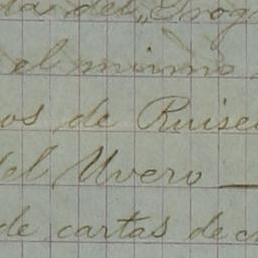 da del "Proga
el mismo
os de Ruise
del Uvero —
de cartas de c